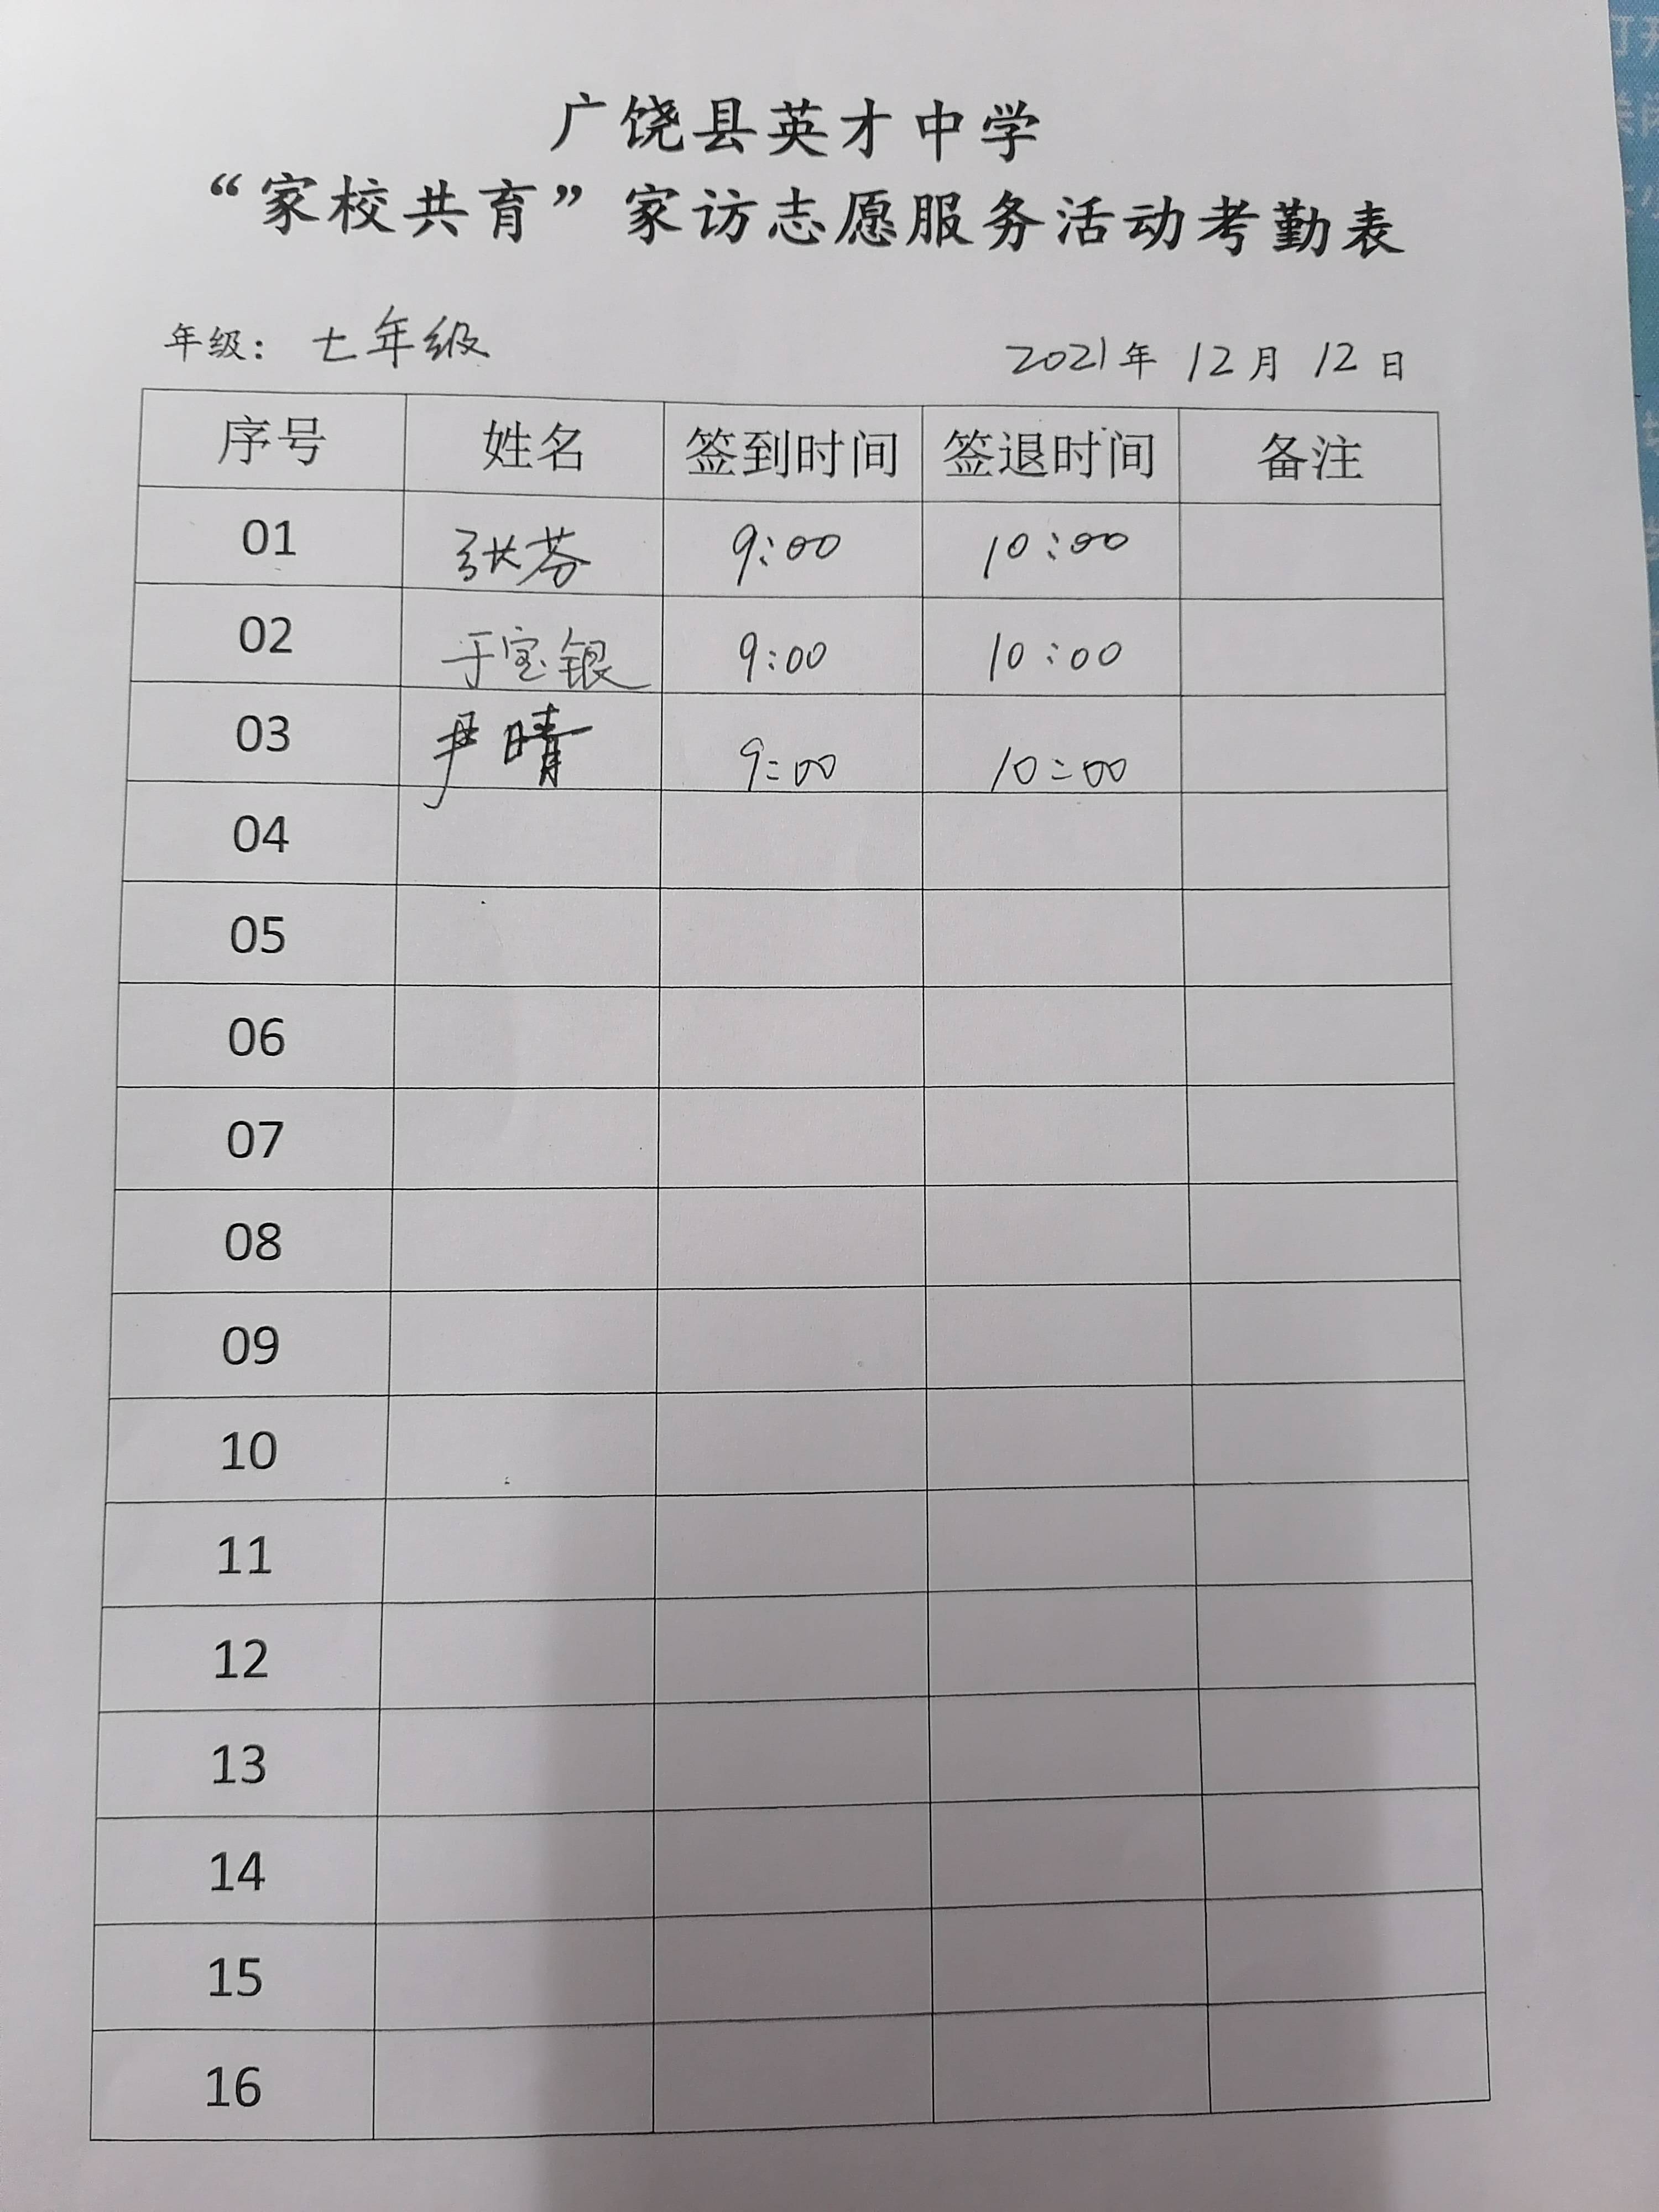 广饶县英才中学
“家校共育”家访志愿服务活动考勤表
年级：七年级 2021年 12月 12日
序号 姓名 签到时间 签退时间 备注
01 张芬 9:00 10:00
02 于宝银 9:00 10:00
03 尹晴 9:00 10:00
04
05
06
07
08
09
10
11
12
13
14
15
16